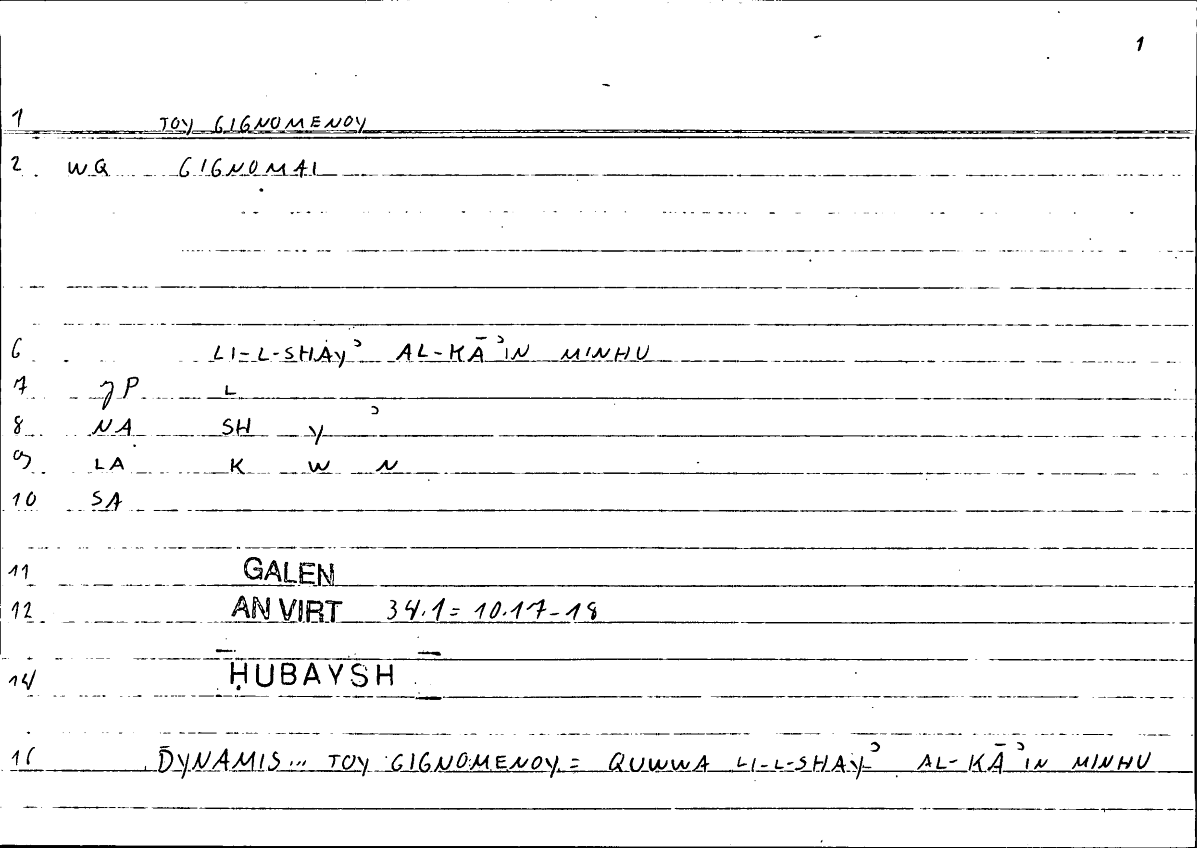 1
1 TOY GIGNOMENOY
2 WQ GIGNOMAI
6 LI-L-SHAYʾ AL-KĀʾIN MINHU
7 JP L
8 NA SH Y ʾ
9 LA K W N
10 SA
11 GALEN
12 AN VIRT 34.1 = 10.17-18
14 ḤUBAYSH
16 DYNAMIS... TOY GIGNOMENOY = QUWWA LI-L-SHAYʾ AL-KĀʾIN MINHU